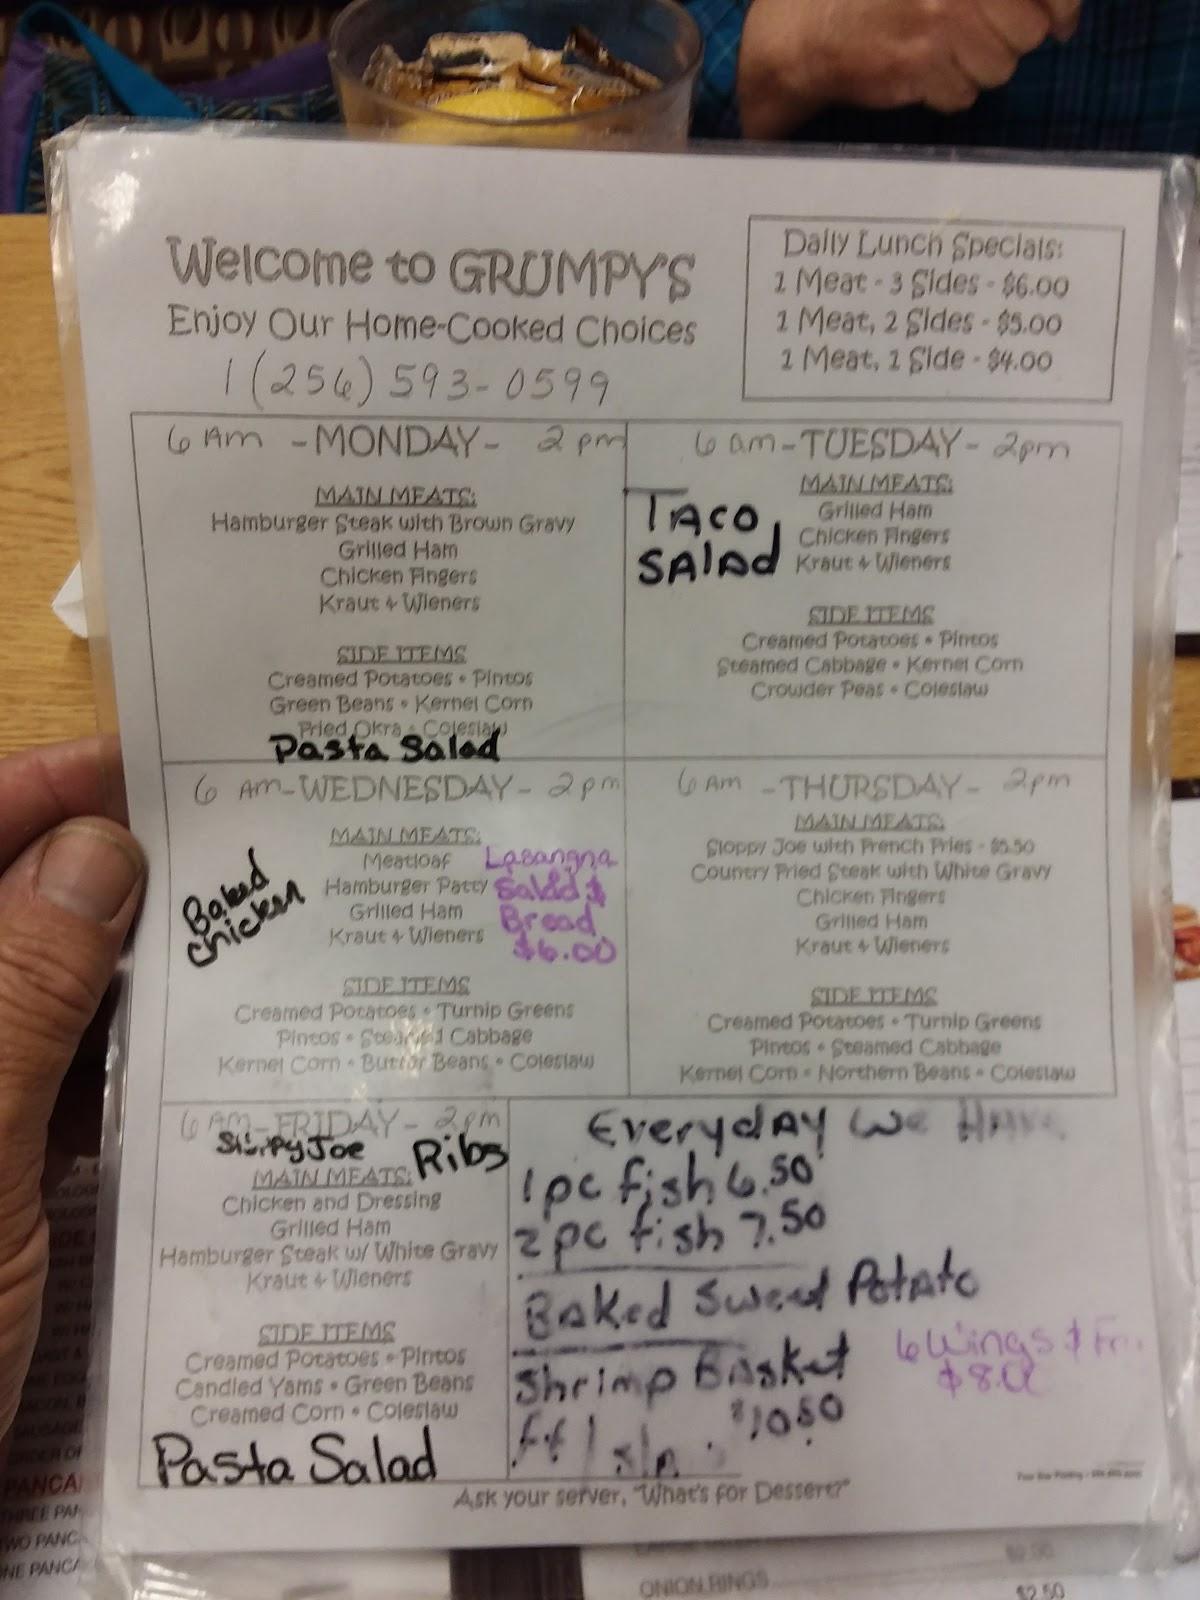 Welcome to GRUMPY'S
Enjoy Our Home-Cooked Choices
1 (256) 593-0599
Daily Lunch Specials:
1 Meat - 3 Sides - $6.00
1 Meat, 2 Sides - $5.00
1 Meat, 1 Side - $4.00
6 Am - MONDAY - 2 pm
MAIN MEATS:
Hamburger Steak with Brown Gravy
Grilled Ham
Chicken Fingers
Kraut & Wieners
SIDE ITEMS
Creamed Potatoes • Pintos
Green Beans • Kernel Corn
Fried Okra • Coleslaw
Pasta Salad
6 am - TUESDAY - 2pm
Taco
Salad
MAIN MEATS:
Grilled Ham
Chicken Fingers
Kraut & Wieners
SIDE ITEMS
Creamed Potatoes • Pintos
Steamed Cabbage • Kernel Corn
Crowder Peas • Coleslaw
6 Am - WEDNESDAY - 2pm
Baked
chicken
MAIN MEATS:
Meatloaf
Hamburger Patty
Grilled Ham
Kraut & Wieners
Lasangna
Salad &
Bread
$6.00
SIDE ITEMS
Creamed Potatoes • Turnip Greens
Pintos • Steamed Cabbage
Kernel Corn • Butter Beans • Coleslaw
6 Am - THURSDAY - 2pm
MAIN MEATS:
Sloppy Joe with French Fries - $5.50
Country Fried Steak with White Gravy
Chicken Fingers
Grilled Ham
Kraut & Wieners
SIDE ITEMS
Creamed Potatoes • Turnip Greens
Pintos • Steamed Cabbage
Kernel Corn • Northern Beans • Coleslaw
6 AM - FRIDAY - 2pm
Joe
Ribs
MAIN MEATS:
Chicken and Dressing
Grilled Ham
Hamburger Steak w/ White Gravy
Kraut & Wieners
SIDE ITEMS
Creamed Potatoes • Pintos
Candied Yams • Green Beans
Creamed Corn • Coleslaw
Pasta Salad
Everyday We Have
1 pc fish 6.50
2 pc fish 7.50
Baked Sweet Potato
Shrimp Basket
$10.50
6 Wings &
Ask your server, "What's for Dessert?"
ONION RINGS
$2.50